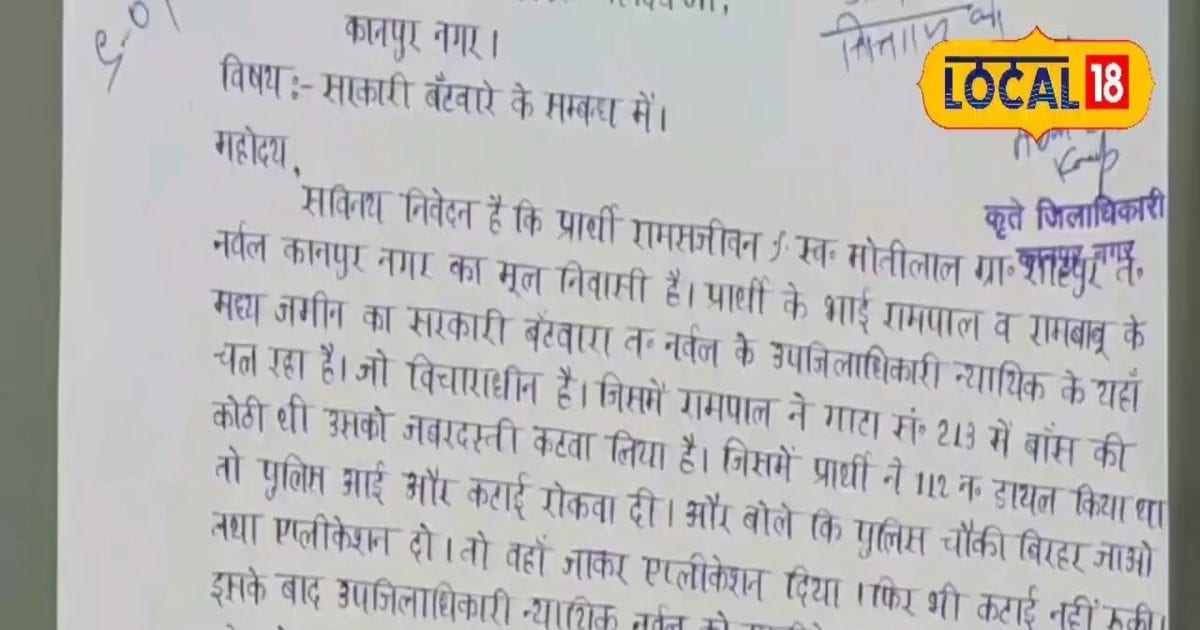 कानपुर नगर।
विषय:- साकारी बँटवारे के सम्बन्ध में।
महोदय,
सविनय निवेदन है कि प्रार्थी रामसजीवन S/. स्व॰ मोतीलाल ग्रा॰ त॰
नर्वल कानपुर नगर का मूल निवासी है। प्रार्थी के भाई रामपाल व रामबाबू के
मध्य जमीन का सरकारी बँटवारा त॰ नर्वल के उपजिलाधिकारी न्यायिक के यहाँ
चल रहा है। जो विचाराधीन है। जिसमें रामपाल ने गाटा सं॰ 213 में बाँस की
कोठी थी उसको जबरदस्ती कटवा लिया है। जिसमें प्रार्थी ने 112 न॰ डायल किया था
तो पुलिस आई और कटाई रोकवा दी। और बोले कि पुलिस चौकी बिरहर जाओ
तथा एप्लीकेशन दो। तो वहाँ जाकर एप्लीकेशन दिया। फिर भी कटाई नहीं रूकी।
इसके बाद उपजिलाधिकारी न्यायिक नर्वल को
LOCAL 18
कृते जिलाधिकारी
कानपुर नगर